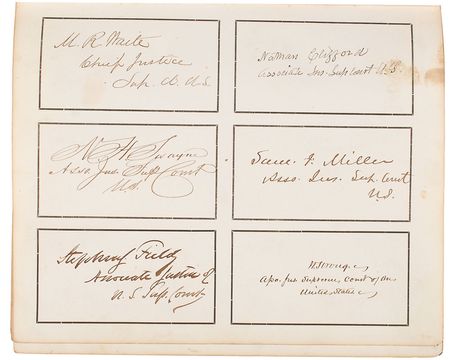 M R Waite
Chief Justice
Sup. Ct. U.S.
Nathan Clifford
Associate Jus. Sup Court U.S.
N H Swayne
Asso. Jus. Sup Court
U.S.
Sam. F. Miller
Asso. Jus. Sup. Court
U.S.
Stephen J Field
Associate Justice of
U.S Sup. Court
W. Strong
Asso. Jus. Supreme Court of the
United States